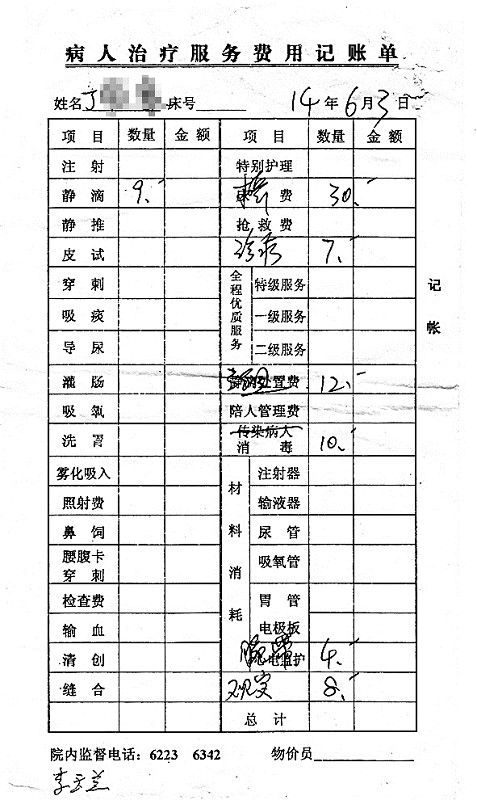 病人治疗服务费用记账单
姓名 丁 床号 14年6月3日
项目 数量 金额 项目 数量 金额
注射 特别护理
静滴 9. 费 30.
静推 抢救费
皮试 诊疗 7.
穿刺 全程优质服务 特级服务
吸痰 一级服务
导尿 二级服务
灌肠 处置费 12.
吸氧 陪人管理费
洗胃 传染病人消毒 10.
雾化吸入 材料消耗 注射器
照射费 输液器
鼻饲 尿管
腰腹卡穿刺 吸氧管
检查费 胃管
输血 电极板
清创 电监护 4.
缝合 观察 8.
总计
记帐
院内监督电话：6223 6342 物价员